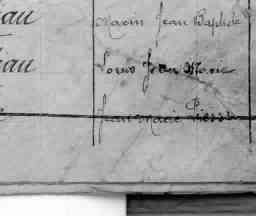 au Maxin Jean Baptiste
eau Louis Jean Marie
Jean Marie Pierre